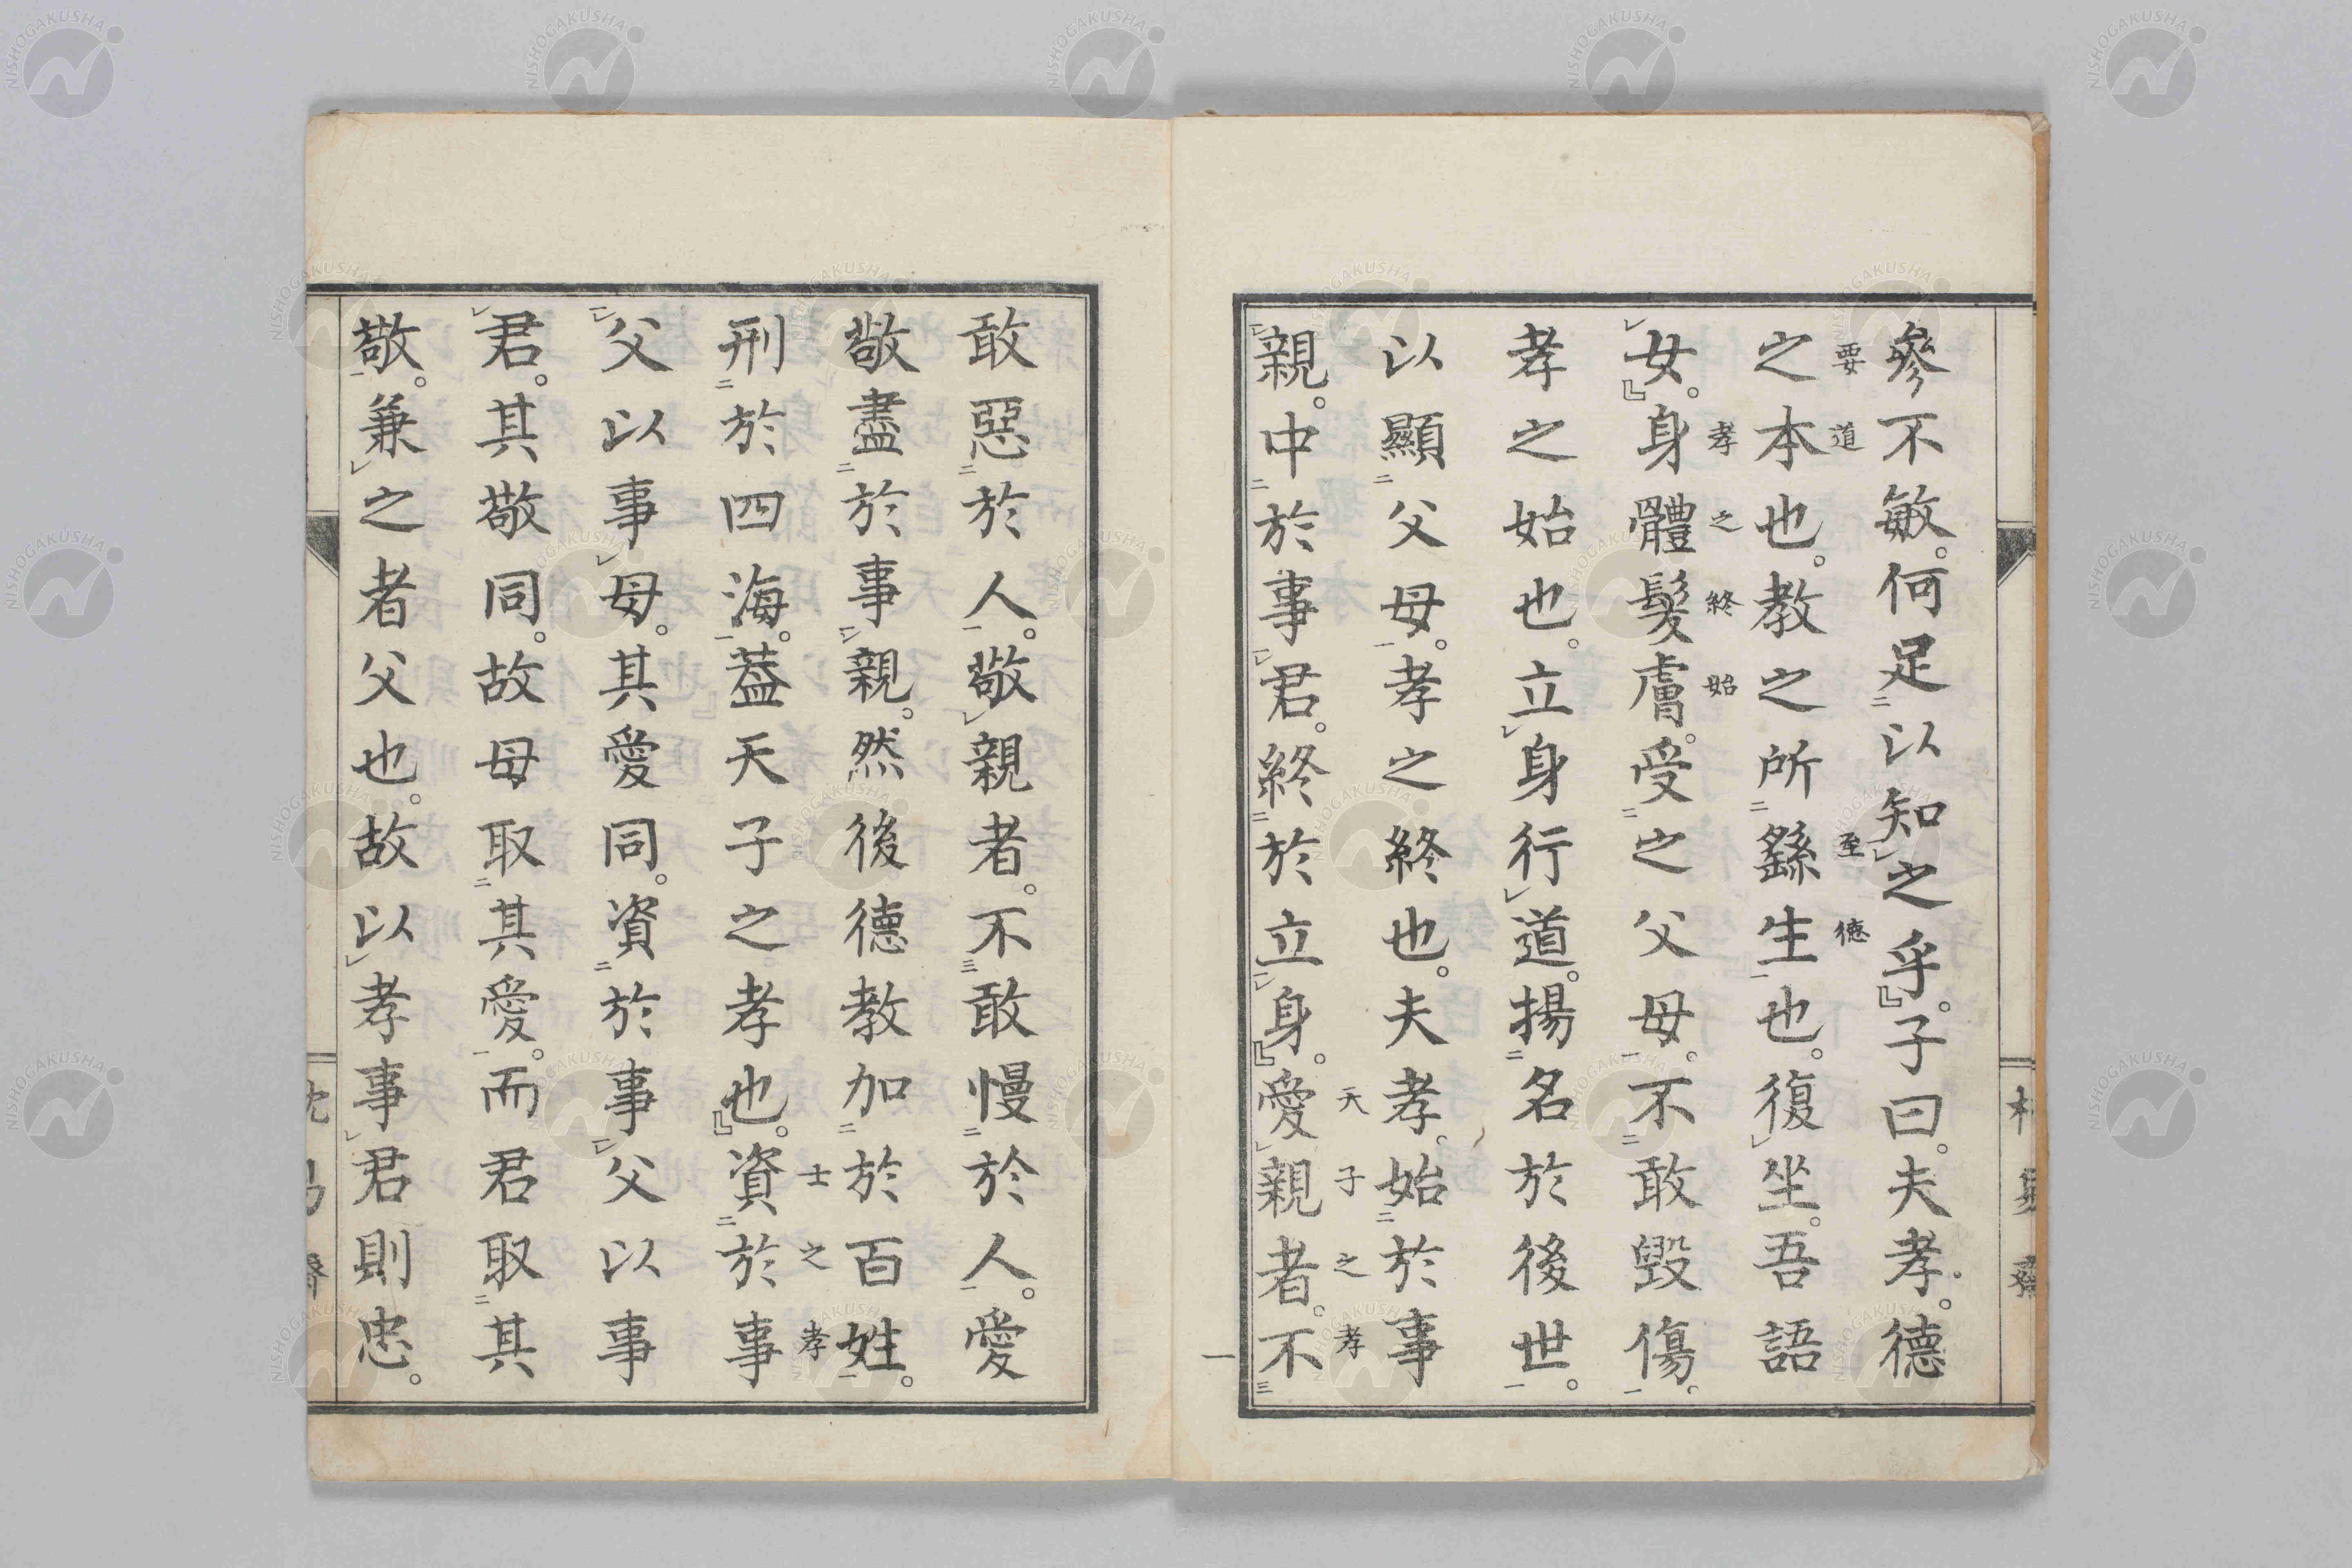 參不敏。何足以知之乎。』子曰。夫孝。德
要道 至德
之本也。教之所繇生也。復坐。吾語
孝之終始
女。』身體髮膚。受之父母。不敢毀傷。
孝之始也。立身行道。揚名於後世。
以顯父母。孝之終也。夫孝。始於事
天子之孝
親。中於事君。終於立身。』愛親者。不
一
敢惡於人。敬親者。不敢慢於人。愛
敬盡於事親。然後德教加於百姓。
士之孝
刑於四海。葢天子之孝也。』資於事
父以事母。其愛同。資於事父以事
君。其敬同。故母取其愛。而君取其
敬。兼之者父也。故以孝事君則忠。
NISHOGAKUSHA